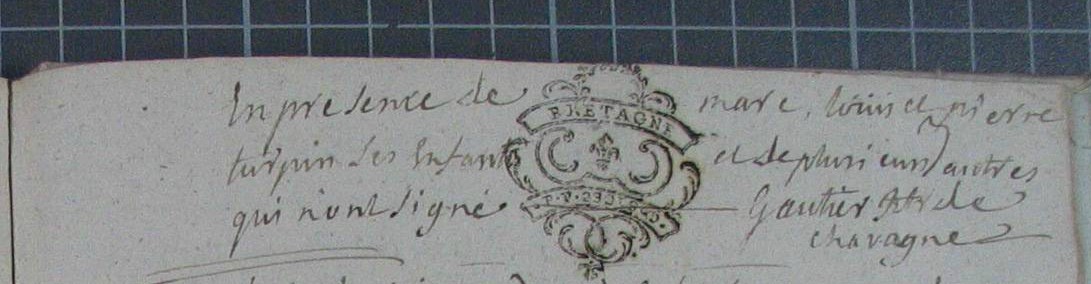 En presence de marc, louis et pierre
turpin ses Enfants et de plusieurs autres
qui nont signé Gautier ptr de
chavagne
BRETAGNE